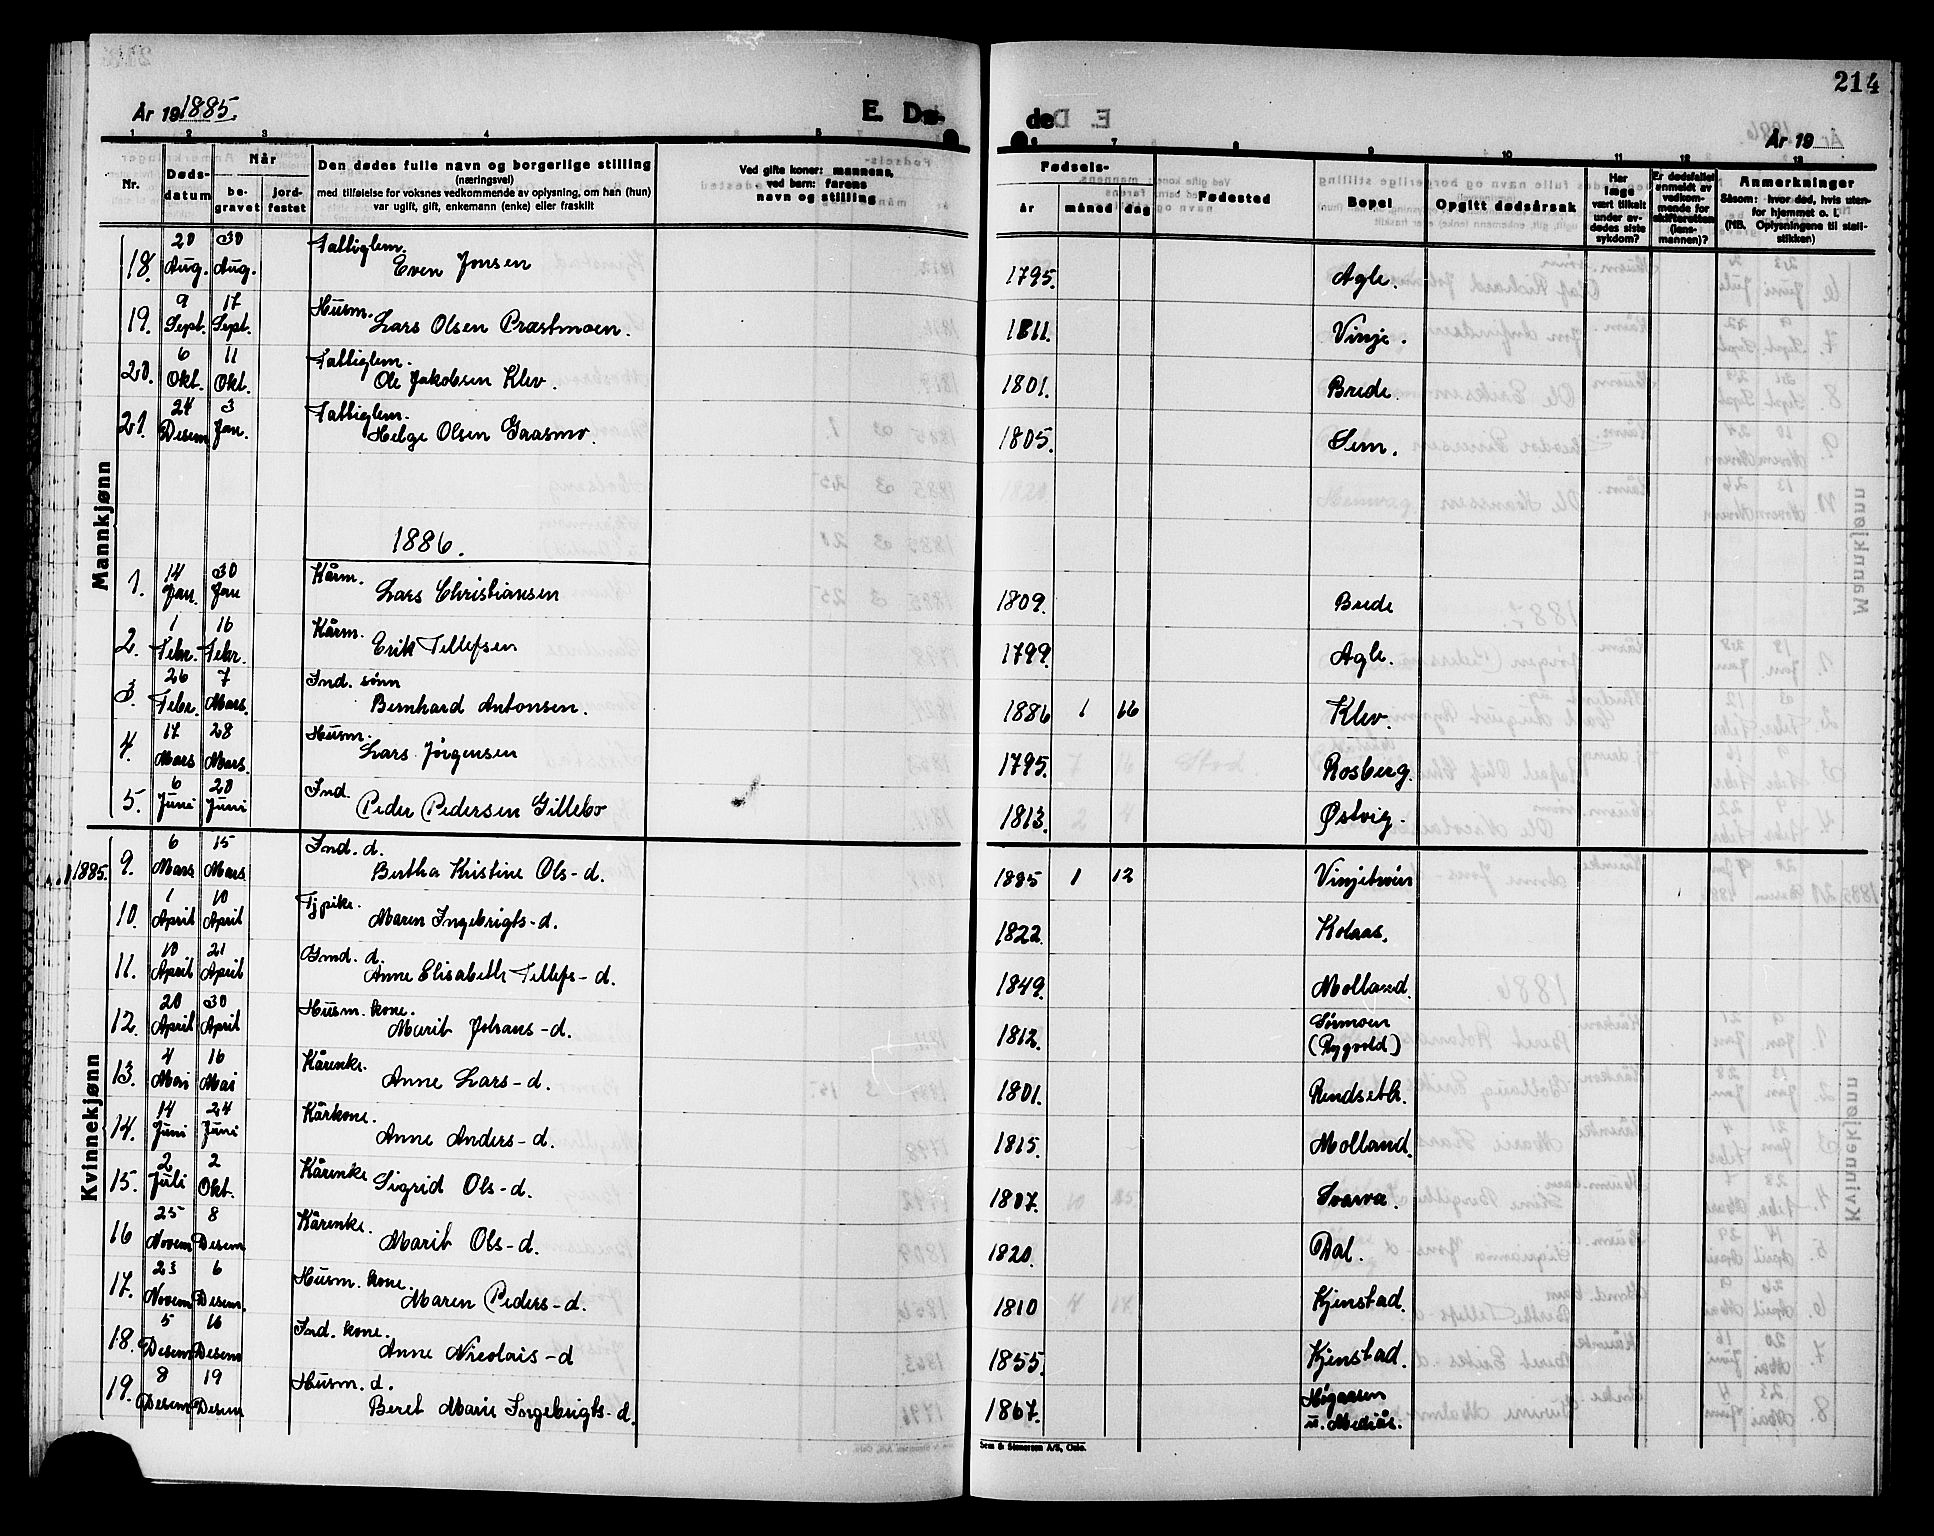 214
År 19 1885.
E. Dø-
de
År 19
1 2 3 4 5 6 7 8 9 10 11 12 13
Nr.
Døds-
datum
Når
be-
gravet
jord-
festet
Den dødes fulle navn og borgerlige stilling
(næringsvei)
med tilføielse for voksnes vedkommende av oplysning, om han (hun)
var ugift, gift, enkemann (enke) eller fraskilt
Ved gifte koner: mannens,
ved barn: farens
navn og stilling
Fødsels-
år
måned
dag
Fødested
Bopel
Opgitt dødsårsak
Har
læge
vært tilkalt
under av-
dødes siste
sykdom?
Er dødsfallet
anmeldt av
vedkom-
mende for
skifteretten
(lens-
mannen)?
Anmerkninger
Såsom: hvor død, hvis uten-
for hjemmet o. l.
(NB. Oplysningene til stati-
stikken)
Mannkjønn
18. 20 Aug. 30 Aug. Fattiglem. Even Jonsen 1795. Agle.
19. 9 Sept. 17 Sept. Husm. Lars Olsen Præstmoen. 1811. Vinje.
20. 6 Okt. 11 Okt. Fattiglem. Ole Jakobsen Klev. 1801. Brede.
21. 24 Desem 3 Jan. Fattiglem. Helge Olsen Gaasmo. 1805. Sem.
1886.
1. 14 Jan. 30 Jan Kårm. Lars Christiansen 1809. Brede
2. 1 Febr. 16 Febr. Kårm. Erik Tillefsen 1799. Agle.
3. 26 Febr. 7 Mars. Ind. sønn Bernhard Antonsen. 1886 1 16 Klev.
4. 17 Mars 28 Mars. Husm. Lars Jörgensen 1795. Rosberg.
5. 6 Juni 20 Juni Ind. Peder Pedersen Gillebo 1813. Østvig.
Kvinnekjønn
1885. 9. 6 Mars 15 Mars. Ind. d. Bertha Kristine Ols-d. 1885 1 12 Vinjetrøen
10. 1 April 10 April Tjpike. Maren Ingebrigts-d. 1822. Kolaas.
11. 10 April 21 April Gmd. d. Anne Elisabeth Tillefs-d. 1849. Molland.
12. 20 April 30 April Husm. kone. Marit Johans-d. 1812. Sørmoen (Rygvold)
13. 4 Mai 16 Mai Kårenke. Anne Lars-d. 1801. Rindseth.
14. 14 Juni 24 Juni Kårkone. Anne Anders-d. 1815. Molland.
15. 2 Juli 2 Okt. Kårenke Sigrid Ols-d. 1807. Svarva.
16 25 Novem 8 Desem Kårenke. Marit Ols-d. 1820. Dal.
17. 23 Novem 6 Desem. Husm. kone. Maren Peders-d. 1810 Kjenstad.
18. 5 Desem 16 Desem Ind. kone. Anne Nicolais-d 1855. Kjenstad.
19. 8 Desem 19 Desem Husm. d. Beret Marie Ingebrigts-d. 1867. Högaasen u. Medjås.
Sem & Stenersen A/S, Oslo.